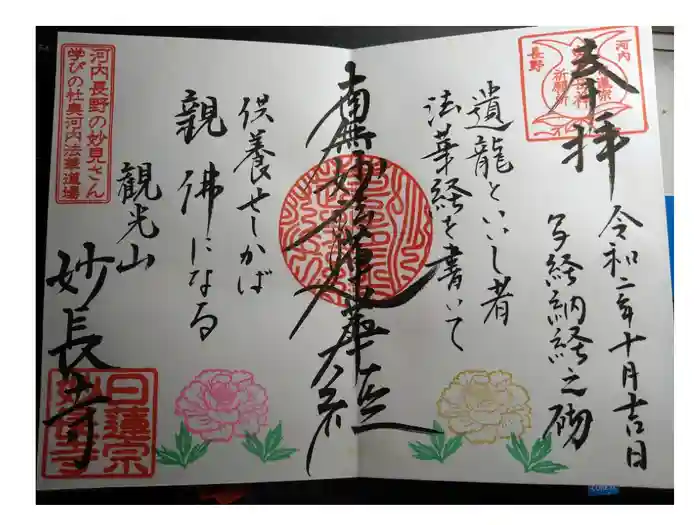 奉拝
令和二年十月吉日
写経納経之砌
河内
長野
祈願所
遺龍といいし者
法華経を書いて
南無妙法蓮華経
供養せしかば
親佛になる
観光山
妙長寺
河内長野の妙見さん
学びの杜奥河内法華道場
日蓮宗
妙長寺